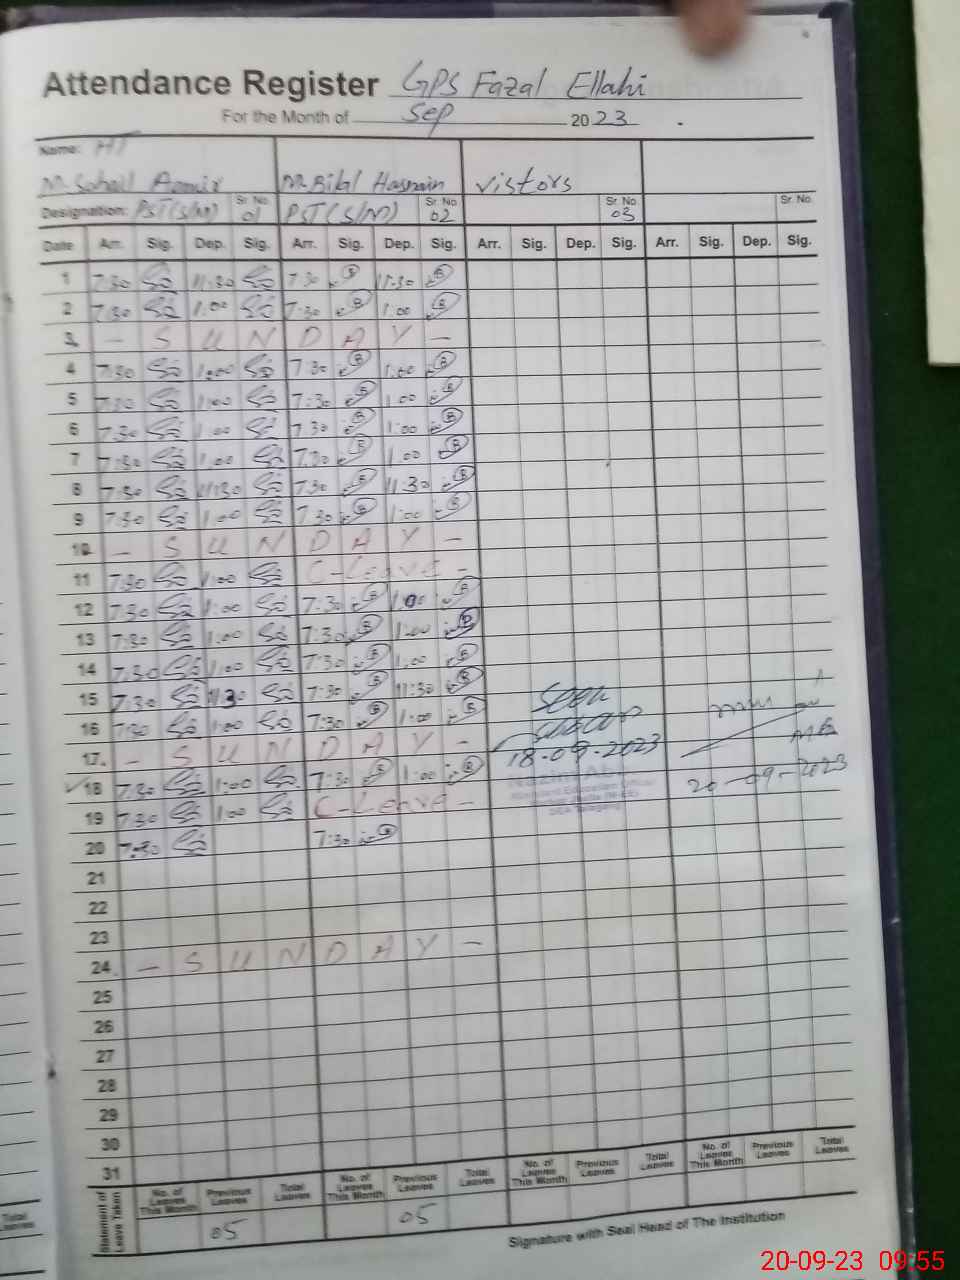 Attendance Register GPS Fazal Ellahi
For the Month of Sep 2023
Name: HT
M. Sohail Aamir M. Bilal Hasnain Vistors
Designation: PST(S/M) Sr. No. 01 PST(S/M) Sr. No. 02 Sr. No. 03 Sr. No.
Date Arr. Sig. Dep. Sig. Arr. Sig. Dep. Sig. Arr. Sig. Dep. Sig. Arr. Sig. Dep. Sig.
1 7:30 11:30 7:30 11:30
2 7:30 1:00 7:30 1:00
3 - S U N D A Y -
4 7:30 1:00 7:30 1:00
5 7:30 1:00 7:30 1:00
6 7:30 1:00 7:30 1:00
7 7:30 1:00 7:30 1:00
8 7:30 11:30 7:30 11:30
9 7:30 1:00 7:30 1:00
10 - S U N D A Y -
11 7:30 1:00 C-Leave -
12 7:30 1:00 7:30 1:00
13 7:30 1:00 7:30 1:00
14 7:30 1:00 7:30 1:00
15 7:30 11:30 7:30 11:30 Seen
16 7:30 1:00 7:30 1:00
17 - S U N D A Y - 18-09-2023
18 7:30 1:00 7:30 1:00 20-09-2023
19 7:30 1:00 C-Leave -
20 7:30 7:30
21
22
23
24 - S U N D A Y -
25
26
27
28
29
30
31
Statement of Leave Taken No. of Leaves This Month Previous Leaves Total Leaves No. of Leaves This Month Previous Leaves Total Leaves No. of Leaves This Month Previous Leaves Total Leaves No. of Leaves This Month Previous Leaves Total Leaves
05 05
Signature with Seal Head of The Institution
Total Leaves
20-09-23 09:55